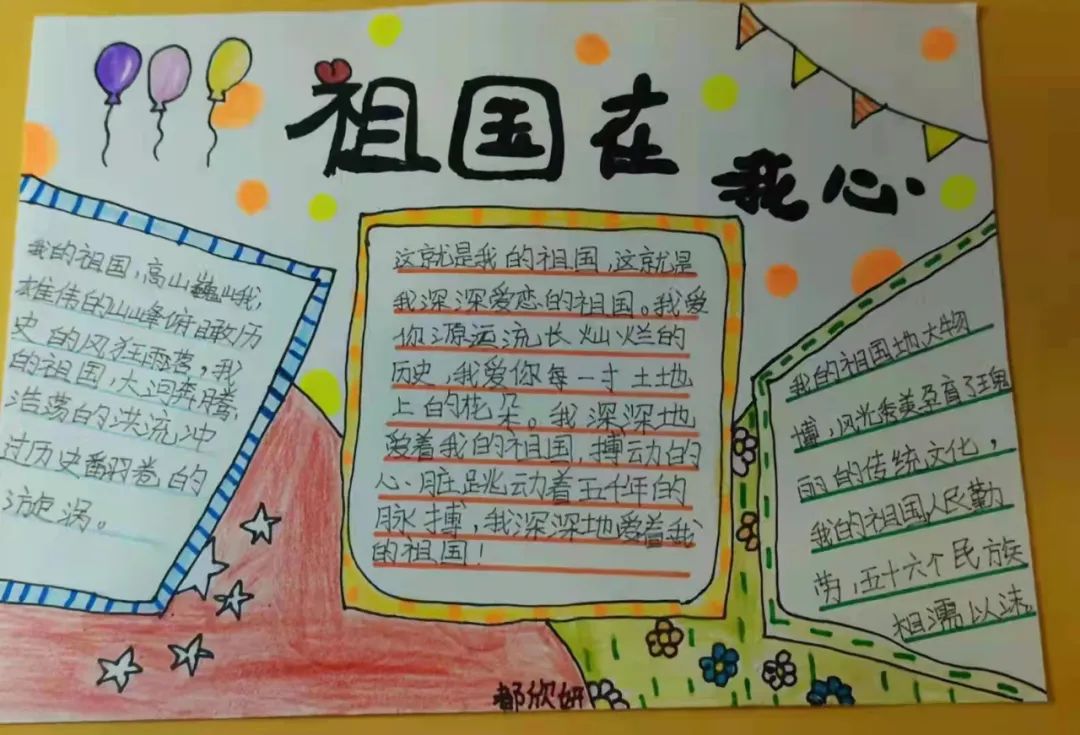 祖国在
我心
我的祖国,高山巍峨,
雄伟的山峰俯瞰历
史的风狂雨落,我
的祖国,大河奔腾,
浩荡的洪流冲
过历史翻卷的
旋涡。
这就是我的祖国,这就是
我深深爱恋的祖国。我爱
你源远流长灿烂的
历史,我爱你每一寸土地
上的花朵。我深深地
爱着我的祖国,搏动的
心脏跳动着五千年的
脉搏,我深深地爱着我
的祖国!
我的祖国地大物
博,风光秀美孕育了瑰
丽的传统文化,
我的祖国人民勤
劳,五十六个民族
相濡以沫。
都欣妍